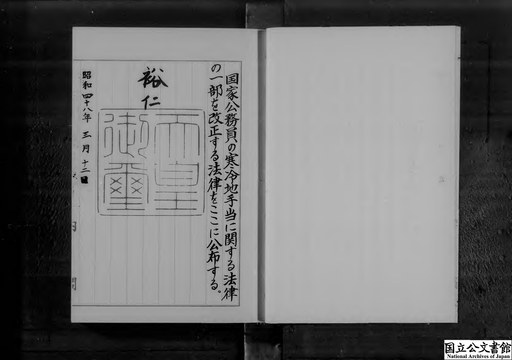 国家公務員の寒冷地手当に関する法律
の一部を改正する法律をここに公布する。
裕仁
天皇
御璽
昭和四十八年三月十二日
国立公文書館
National Archives of Japan